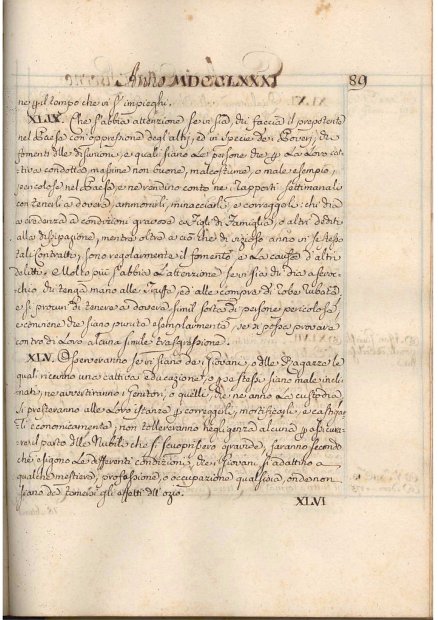 Anno MDCCLXXXI 89
ne, il tempo che vi s'impieghi.
XLIV. Che s'abbia attenzione se vi sia, chi faccia il prepotente
nel Paese con oppressione degl'altri, ed in specie de' Poveri, chi
fomenti delle disunioni, e quali siano le persone che per la loro cat-
tiva condotta, massime non buone, mal costume, o male esempio,
pericolose nel Paese, e ne rendino conto ne' rapporti settimanali
contenerli a dovere, ammonirli, minacciarli, e correggerli: chi dia
a credenza a condizioni gravose a Figli di Famiglia, o altri dediti
alla dissipazione, mentre oltre a ciò che di vizioso anno in se
tali Contratti, sono regolarmente il fomento, e la causa d'altri
delitti. E molto più s'abbia l'attenzione se vi sia chi dia
chio chi tenga mano alle Truffe, ed alle compre di robe rubate,
e si procuri di tenere a dovere simil sorta di persone pericolose,
e conviene che siano punite esemplarmente, se si possa provare
contro di loro alcuna simile trasgressione.
XLV. Osserveranno se vi siano de' Giovani, o delle Ragazze le
quali ricevino una cattiva educazione, o per se stessi siano male incli-
nati, ne avvertiranno i Genitori, o quelli, che ne anno la custodia,
si presteranno alle loro istanze per correggerli, mortificarli, e castigar-
li economicamente; non tolleranno negligenza alcuna per assicura-
re il parto delle Nubili che si scuoprissero gravide, faranno secondo
che esigono le differenti condizioni, che i Giovani si adattino a
qualche mestiere, professione, o occupazione qualsisia, onde non
siano da temersi gli effetti dell'ozio.
XLVI